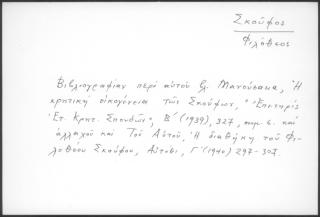 Σκούφος
Φιλόθεος
Βιβλιογραφίαν περί αὐτοῦ βλ. Μανούσακα, Ἡ
κρητική οἰκογένεια τῶν Σκούφων, "Ἐπετηρίς
Ἑτ. Κρητ. Σπουδῶν", Β' (1939), 327, σημ. 6. καί
ἀλλαχοῦ καί Τοῦ Αὐτοῦ, Ἡ διαθήκη τοῦ Φι-
λοθέου Σκούφου, Αὐτόθι, Γ' (1940) 297-307.